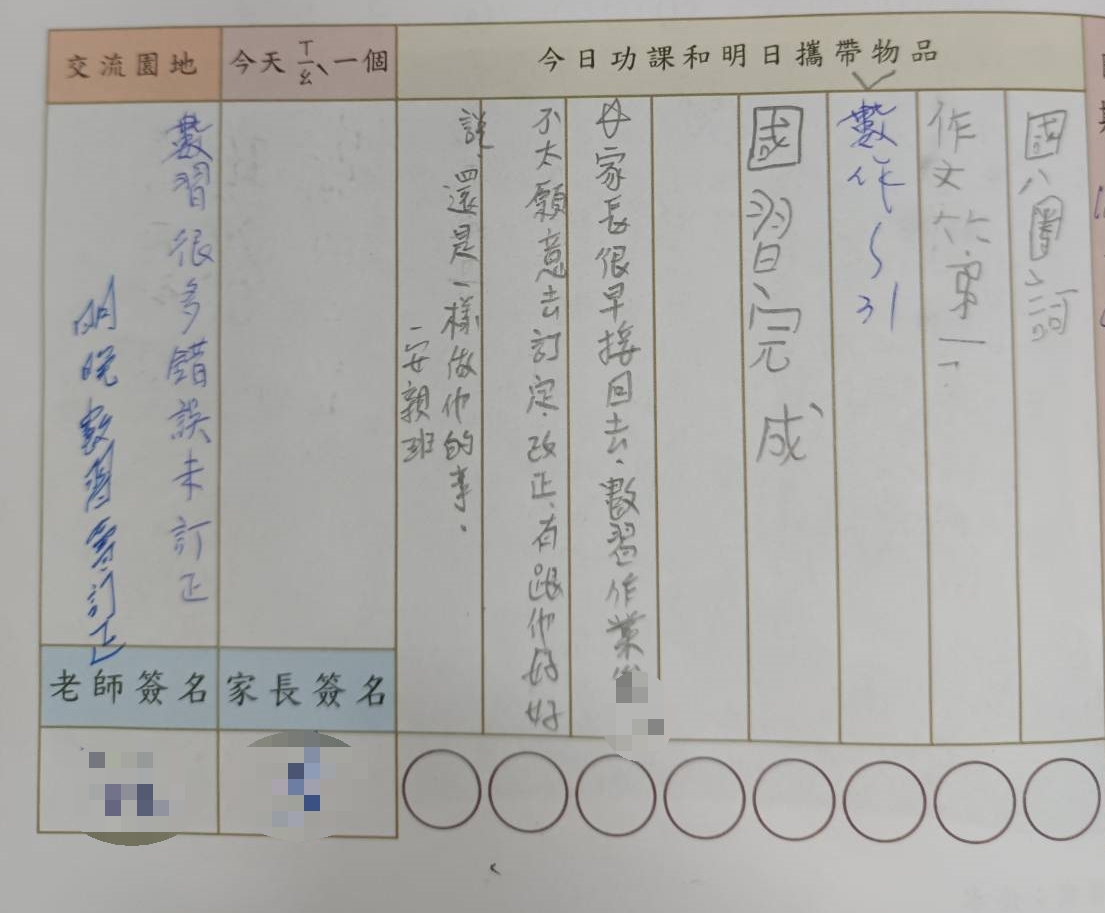 今日功課和明日攜帶物品
國八圈詞
作文第一
數作~31
國習完成
家長很早接回去、數習作業
不太願意去訂定、改正、有跟他好好
說、還是一樣做他的事。
安親班
今天ㄒㄧㄠˋ一個
交流園地
數習很多錯誤未訂正
明晚數習要訂正
家長簽名
老師簽名